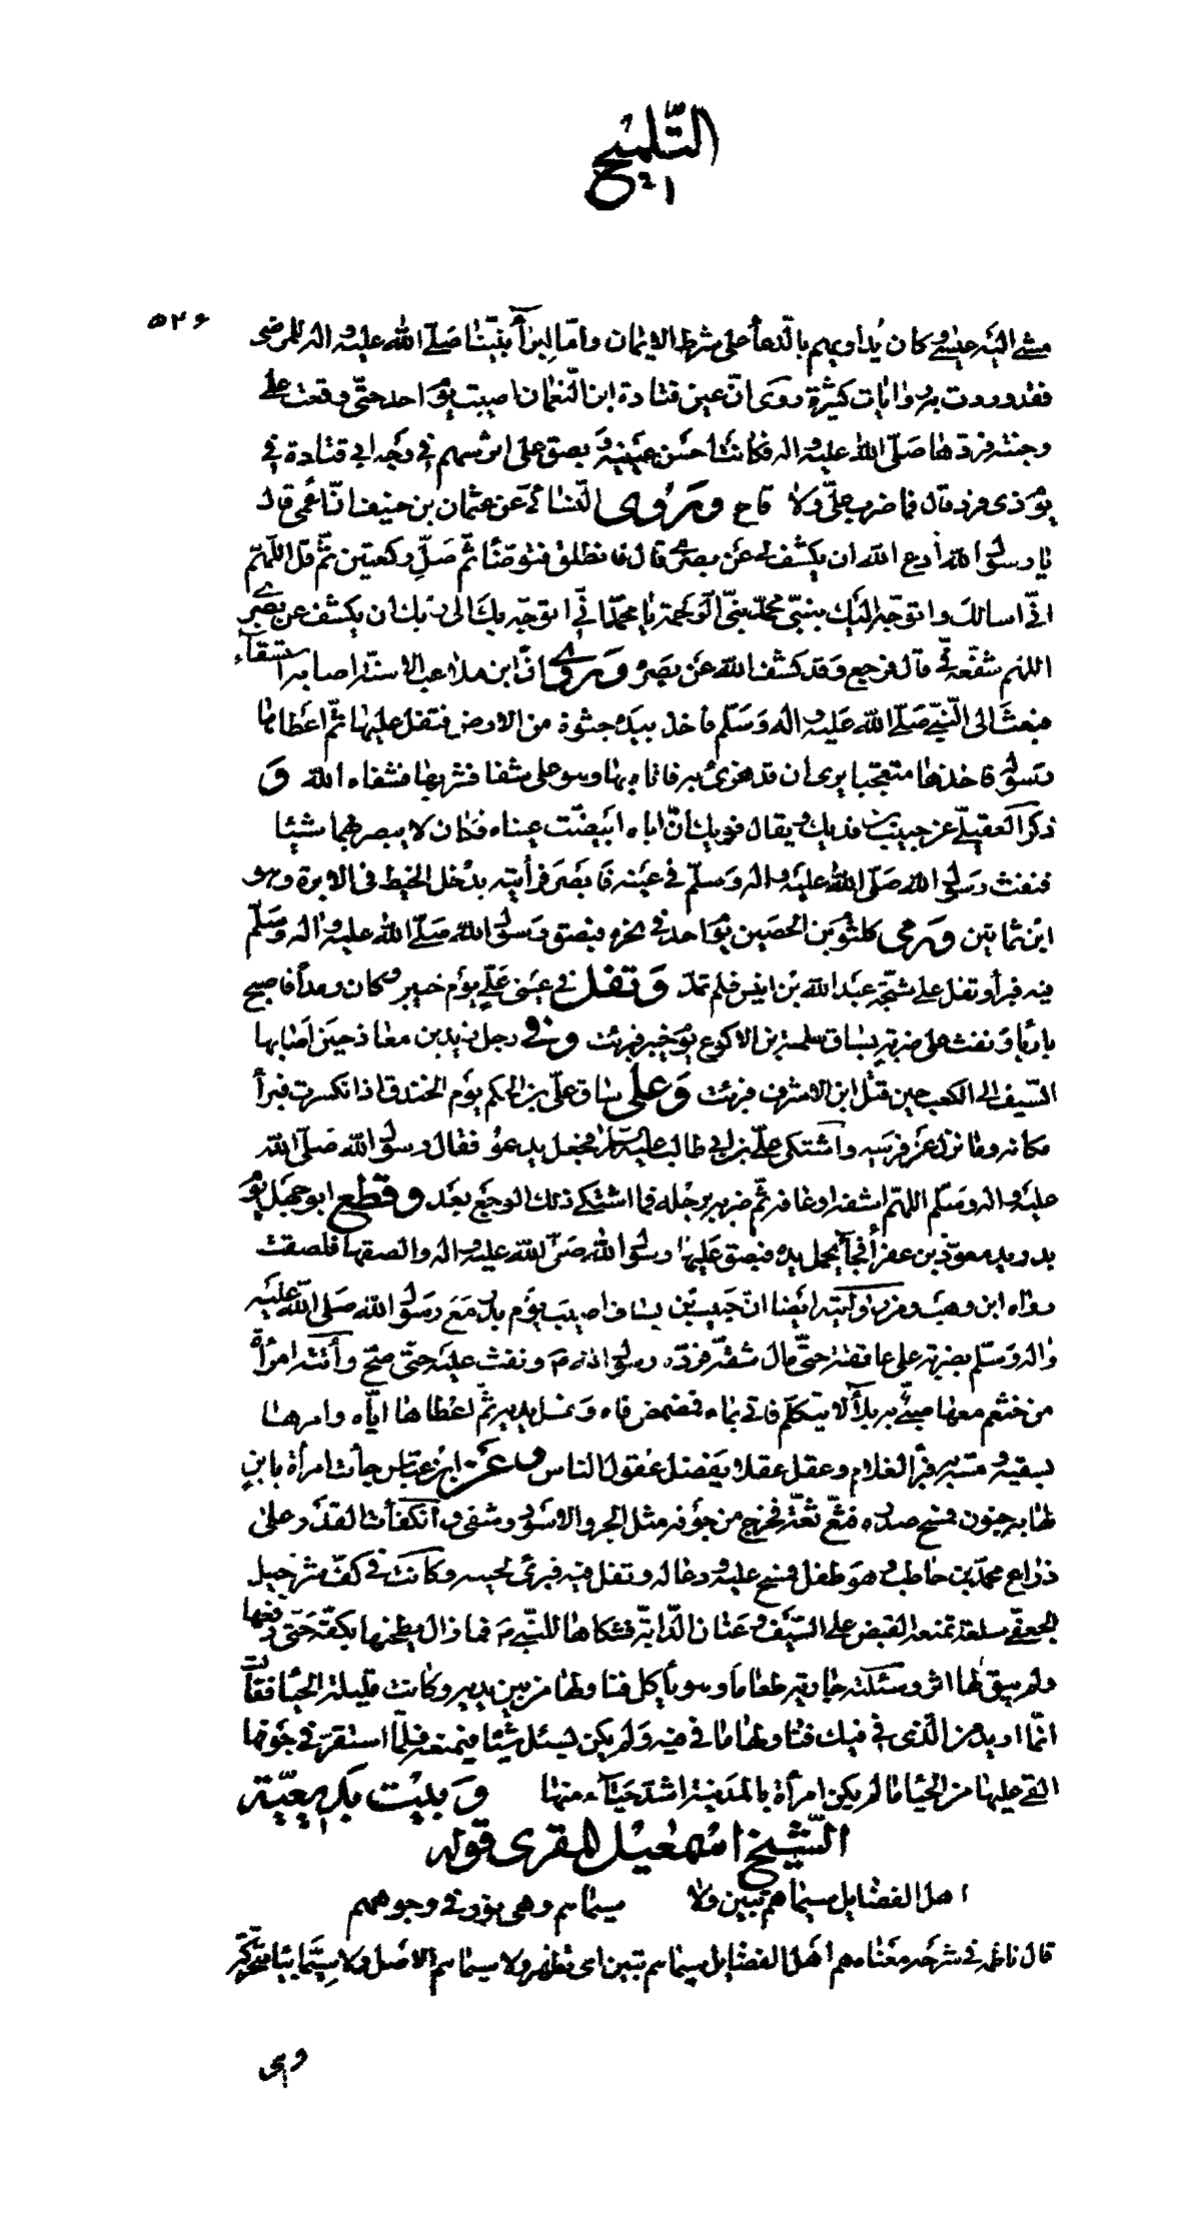 التّلميح
٥٢۶
مشى اليه عيسى كان يُداويهم بالدّعأ على شرط الايمان وامّا ابرأ نبيّنا صَلّى اللّه عليه واله للمرضى
فقد وردت به روايات كثيرة روى انّ عين قتادة ابن النّعمان اصيبت يوم احد حتّى وقعت على
وجنته فردّها صَلّى اللّه عليه واله فكانت احسَن عينيه وَ بصق على اثر سهم في وَجه ابي قتادة في
يوم ذى قرد قال فما ضرب علىّ ولا قاح وَ رَوى النّسائىّ عن عثمان بن حنيف انّ اعْمى قال
يا رسول اللّه أدع اللّه ان يكشف لى عَن بصرى قال فانطلق فتوضّأ ثمّ صَلّ ركعتين ثمّ قل اللّهمّ
انّى اسالك واتوجّه اليك بنبيّى محمّد نبىّ الرّحمة يا محمّد انّى اتوجّه بك الى ربّك ان يكشف عن بصرى
اللهمّ شفّعه فىّ قال فرجع وَقد كشف اللّه عَن بصَره وَ روى انّ ابن ملاعب الاسنّة اصابه استسقآء
فبعث الى النّبىّ صَلّى اللّه عَليه واله وَسَلّم فأخذ بيده حثوة من الارض فتفل عليها ثمّ اعطاها
رسوله فاخذها متعجّبا يرى ان قد هزئ به فاتاه بها وهو على شفا فشربها فشفاه اللّه وَ
ذكر العقيلىّ عن حبيب بن فديك ويقال فويك انّ اباه ابيضّت عيناه فكان لا يبصر بهما شيئا
فنفث رسَول اللّه صَلّى اللّه عليه واله وسلّم في عينيه فأبصَر فرأيته يدْخل الخيط فى الابرة وهو
ابْن ثمانين وَ رمى كلثوم بن الحصَين يوم احد فى نحره فبصق رَسول اللّه صَلّى اللّه عليه واله وسَلّم
فيه فبرأ وتفل على شجّة عبد اللّه بن انيس فلم تمدّ وَ تفل في عينى عَلىّ يوم خيبر وكان رمدا فاصبح
بارئا وَنفث على ضربة بساق سلمة بن الاكوع يوم خيبر فبرئت وَ في رجل زيد بن معاذ حين اصَابها
السّيف الى الكعب حين قتل ابن الاشرف فبرئت وَ على ساق علىّ بن الحكم يوم الخندق اذ انكسرت فبرأ
مكانه وما نزل عن فرسه واشتكى علىّ بن ابى طالب عليه السّلام فجعل يدعو فقال رسول اللّه صَلّى اللّه
عليه واله وسَلّم اللهمّ اشفه او عافه ثمّ ضربه برجْله فما اشتكى ذلك الوجع بعَد وَ قطع ابو جهل يوم
بدر يد معوّذ بن عفرأ فجآء يحمل يده فبصق عليها رسول اللّه صَلّى اللّه عليه واله والصقها فلصقت
رواه ابن وهب ومن روايته ايضا انّ خبيب بن يساف اصيب يوم بدر مَعَ رسَول اللّه صَلّى اللّه عليه
واله وَسلّم بضربة على عاتقه حتّى مال شقّه فردّه رسول اللّه صَ ونفث عليه حتّى صَحّ وأتته امرأة
من خثعم معها صبىّ به بلأ لا يتكلّم فاتى بماء فمضمض فاه وَغسل يديه ثمّ اعْطاها ايّاه وامرها
بسقيه ومسّه به فبرأ الغلام وعقل عقلا يَفضل عقول الناس وَ عن ابن عبّاس جائت امرأة بابن
لها به جنون فمسح صدره فثعّ ثعّة فخرج من جوفه مثل الجرو الاسَود وشفى وَ انكفأت القدر على
ذراع محمّد بن حاطب وهو طفل فمسح عليه ودعا له وتفل فيه فبرئ لحينه وكانت في كفّ شرحبيل
الجعفىّ سلعة تمنعه القبض على السّيف وعنان الدّابّة فشكاها للنّبىّ صَ فما زال يطحنها بكفّه حَتّى رفعها
ولم يبق لها اثر وسَئلته جارية طعاما وهو يأكل فناولها من بين يديه وكانت قليلة الحيَا فقالت
انّما اريد من الّذى في فيك فناولها ما فى فيه وَلم يكن يسئل شيئا فيمنعه فلمّا استقرّ في جوفها
القى عليها من الحيَا ما لم يكن امرأة بالمدينة اشدّ حيَآء منها وَ بيْت بَديعيّة
الشّيخ اسمعيل المقرى قوله
اهل الفضايل سيماهم تبين ولا سيماهم وهى نور فى وجوههم
قال ناظمه في شرحه مَعْناه هم اهل الفضايل سيماهم تبين اى تظهر ولا سيماهم الاصَل ولا سيّما
وهى